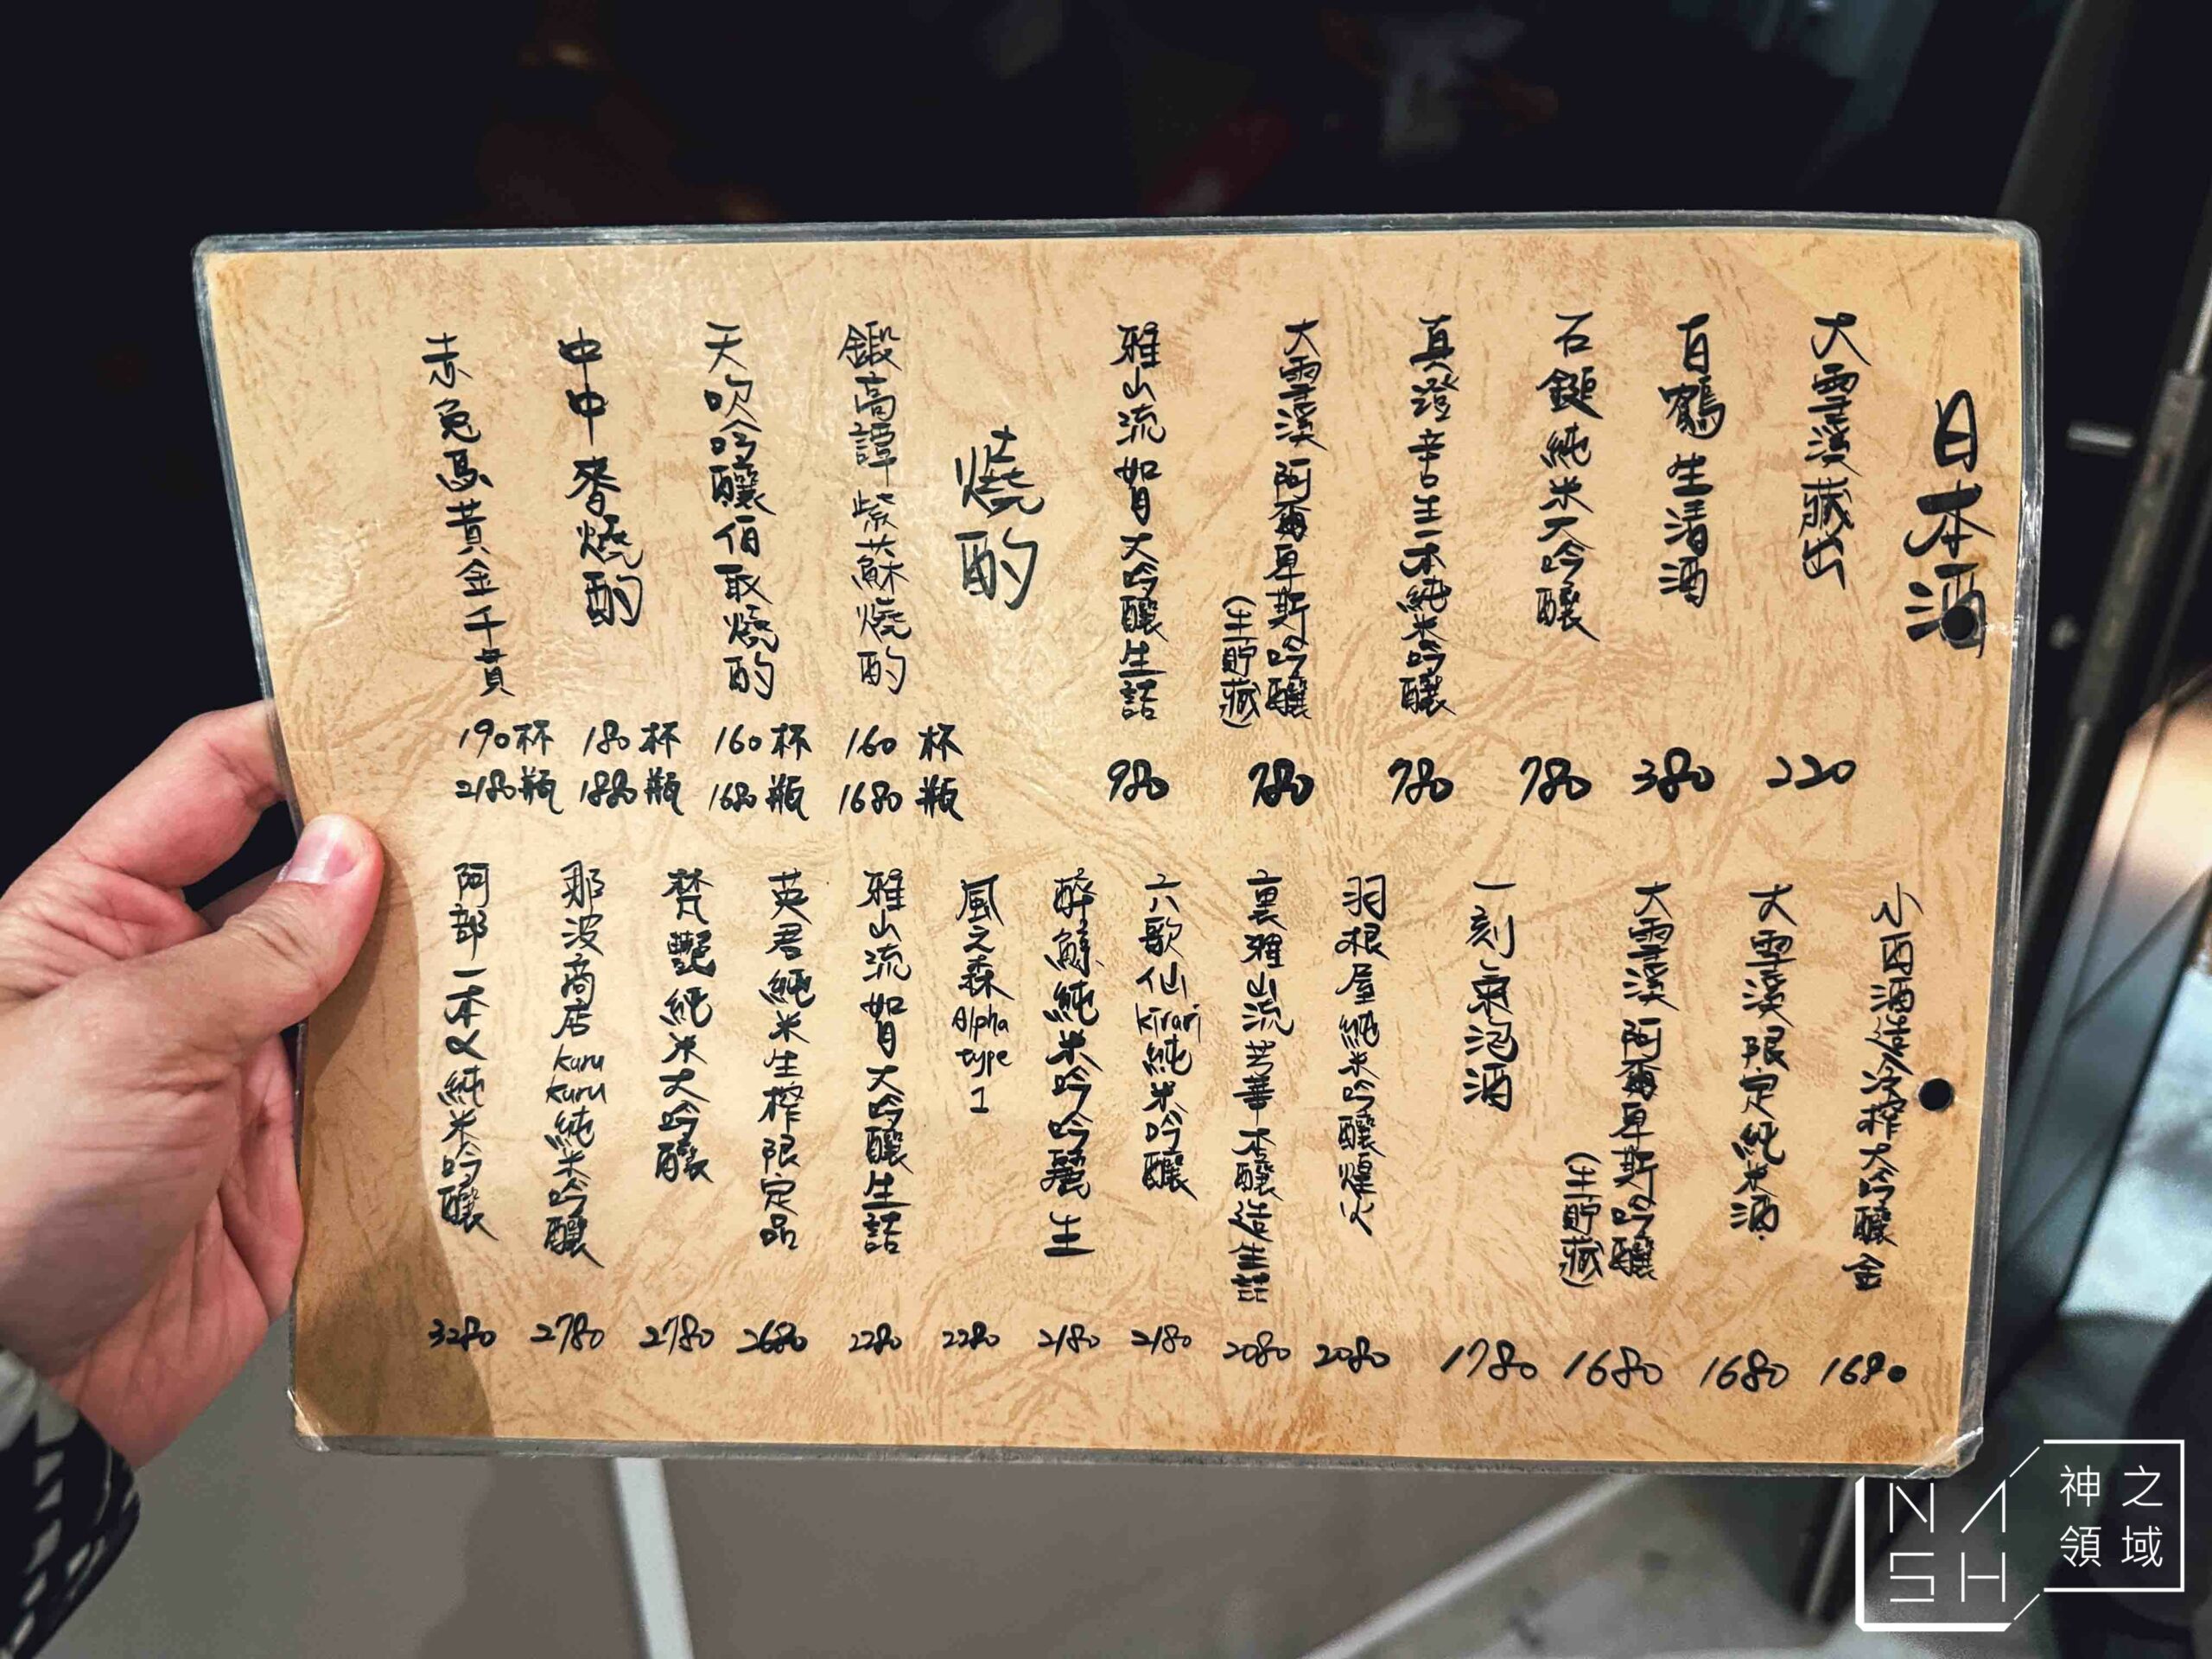 日本酒
大雪溪藏出
220
白鶴生清酒
380
石鎚純米大吟釀
780
真澄辛口生一本純米吟釀
780
大雪溪阿爾卑斯吟釀
(生貯藏)
780
雅山流如月大吟釀生詰
980
燒酌
鍛高譚紫蘇燒酌
160杯
1680瓶
天吹吟釀佰取燒酌
160杯
1680瓶
中中麥燒酌
180杯
1880瓶
赤兔馬黃金千貫
190杯
2180瓶
小西酒造冷榨大吟釀金
1680
大雪溪限定純米酒
1680
大雪溪阿爾卑斯吟釀
(生貯藏)
1680
一刻氣泡酒
1780
羽根屋純米吟釀煌火
2080
裏雅山流芳華本釀造生詰
2080
六歌仙Kirari純米吟釀
2180
醉鯨純米吟吟麗生
2180
風之森Alpha type 1
2280
雅山流如月大吟釀生詰
2280
英君純米生榨限定品
2680
梵艷純米大吟釀
2780
那波商店kuru kuru純米吟釀
2780
阿部一本〆純米吟釀
3280
NASH
神之領域